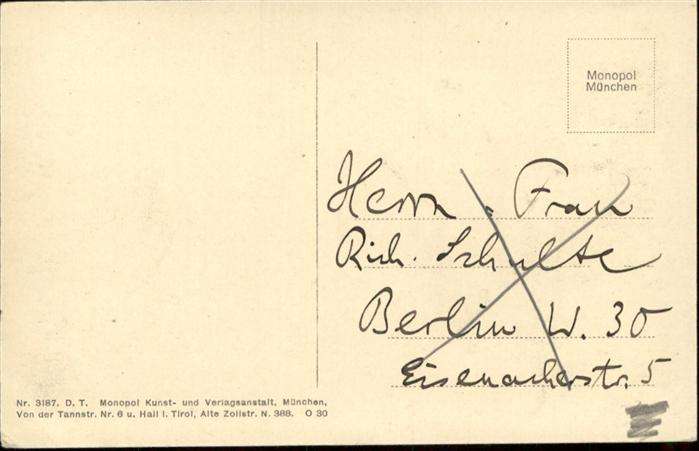 Monopol
München
Herrn . Frau
Rich. Schulte
Berlin W. 30
Eisenacherstr. 5
Nr. 3187. D. T. Monopol Kunst- und Verlagsanstalt, München,
Von der Tannstr. Nr. 6 u. Hall i. Tirol, Alte Zollstr. N. 388. O 30